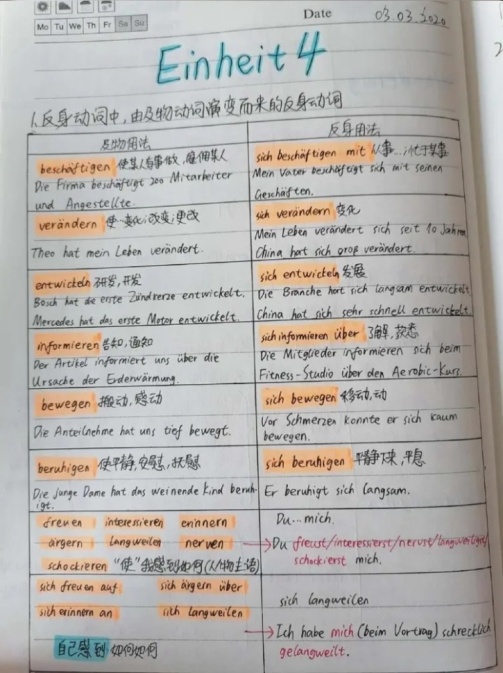 Date 03.03.2020
Mo Tu We Th Fr Sa Su
Einheit 4
1.反身动词中,由及物动词演变而来的反身动词
及物用法
beschäftigen 使某人有事做,雇佣某人
Die Firma beschäftigt 200 Mitarbeiter
und Angestellte.
verändern 使…变化;改变;更改
Theo hat mein Leben verändert.
entwickeln 研发,开发
Bosch hat die erste Zündkerze entwickelt.
Mercedes hat das erste Motor entwickelt.
informieren 告知,通知
Der Artikel informiert uns über die
Ursache der Erderwärmung.
bewegen 搬动,感动
Die Anteilnehme hat uns tief bewegt.
beruhigen 使平静,安慰,抚慰
Die junge Dame hat das weinende Kind beruh-
igt.
freuen interessieren erinnern
ärgern langweilen nerven
schockieren "使"我感到如何(人/物主语)
sich freuen auf sich ärgern über
sich erinnern an sich langweilen
自己感到如何如何
反身用法
sich beschäftigen mit 从事…;忙于某事
Mein Vater beschäftigt sich mit seinen
Geschäften.
sich verändern 变化
Mein Leben verändert sich seit 10 Jahren
China hat sich groß verändert.
sich entwickeln 发展
Die Branche hat sich langsam entwickelt
China hat sich sehr schnell entwickelt.
sich informieren über 了解,获悉
Die Mitglieder informieren sich beim
Fitness-Studio über den Aerobic-Kurs.
sich bewegen 移动,动
Vor Schmerzen konnte er sich kaum
bewegen.
sich beruhigen 平静下来,平息
Er beruhigt sich langsam.
Du...mich.
→Du freust/interessierst/nervst/langweiligst/
schockierst mich.
sich langweilen
→Ich habe mich (beim Vortrag) schrecklich
gelangweilt.